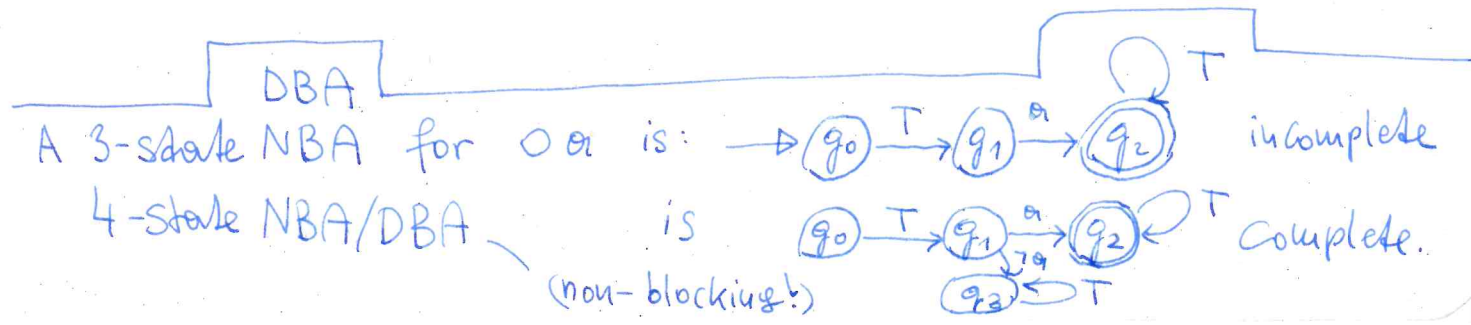 DBA
A 3-state NBA for ○ a is: q0 T q1 a q2 T incomplete
4-state NBA/DBA is q0 T q1 a q2 T complete.
¬a
(non-blocking!) q3 T